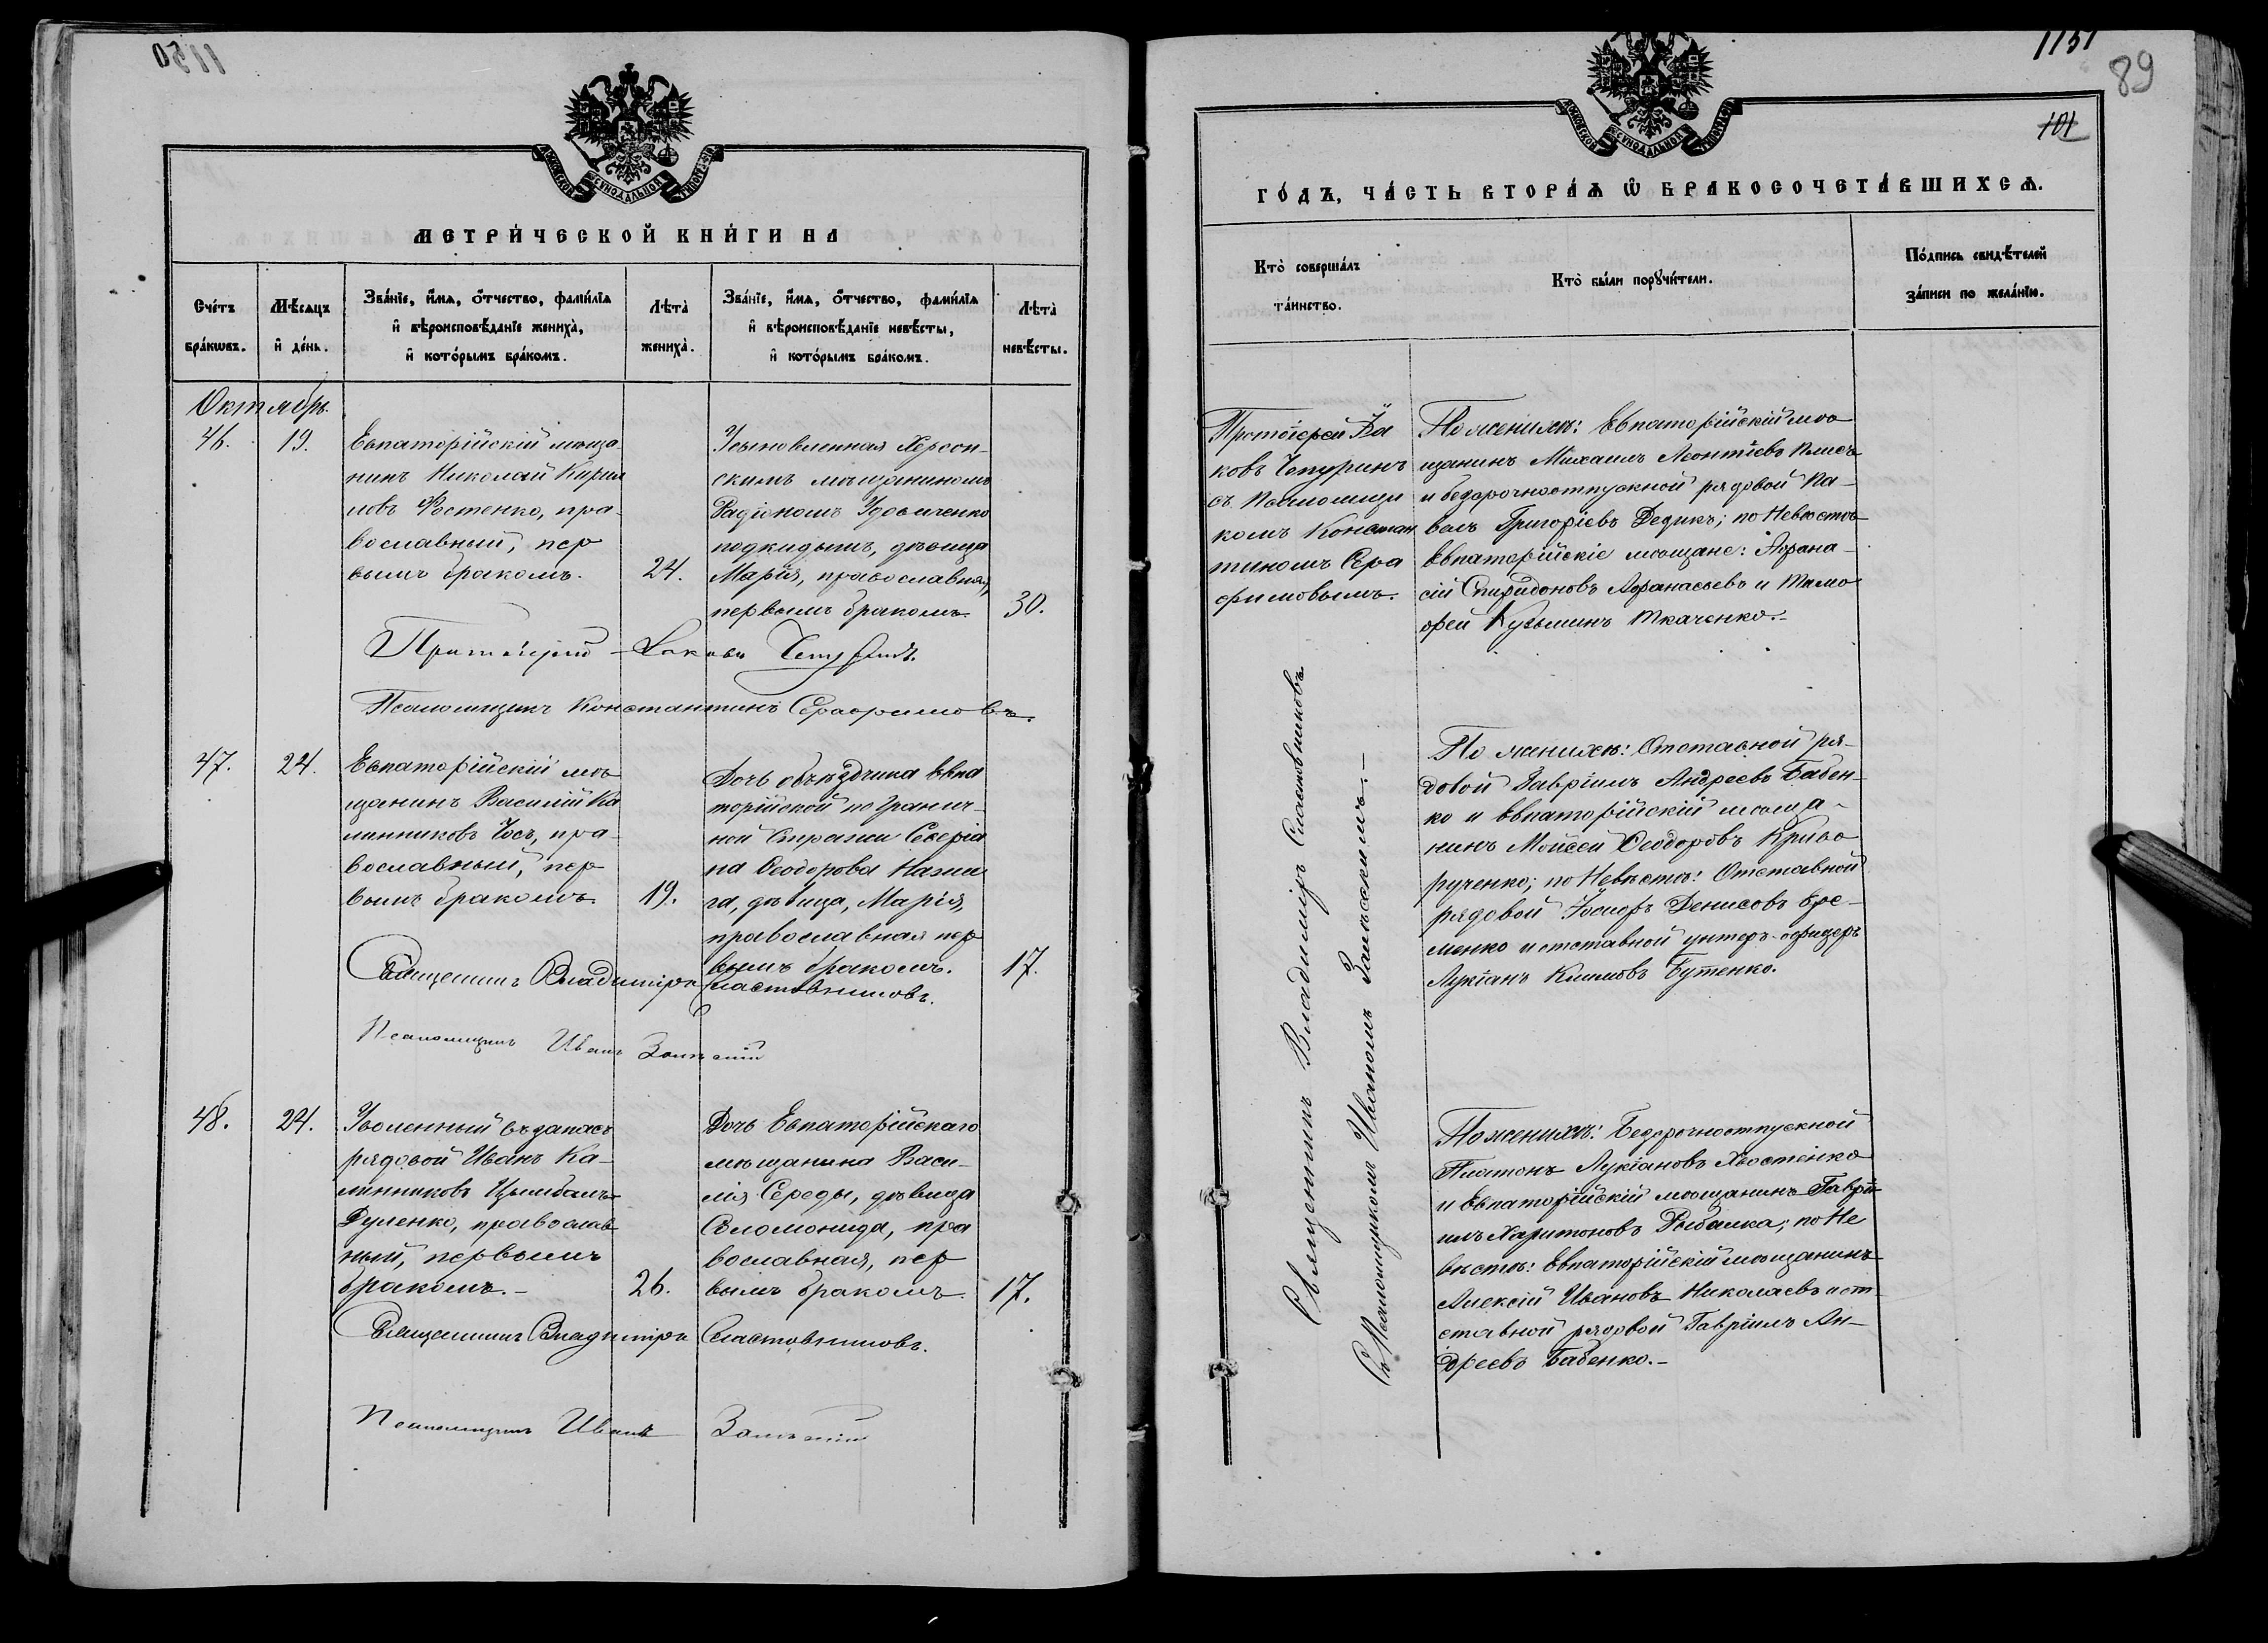 1150
МОСКОВСКОЙ СѴНОДАЛЬНОЙ ТИПОГРАФІИ
МЕТРИ́ЧЕСКОЙ КНИ́ГИ НА
Сче́тъ бра́кѡвъ.
Мѣ́сяцъ и҆ де́нь.
Зва́нїе, и҆́мѧ, ѻ҆́тчество, фамѝлїѧ
и҆ вѣроисповѣ́данїе женихà,
и҆ кото́рымъ бра́комъ.
Лѣ́та̀ женихà.
Зва́нїе, и҆́мѧ, ѻ҆́тчество, фамѝлїѧ
и҆ вѣроисповѣ́данїе невѣ́сты,
и҆ кото́рымъ бра́комъ.
Лѣ́та̀ невѣ́сты.
Октябрь.
46.
19.
Евпаторійскій мѣща-
нинъ Николай Кирил
ловъ Фостенко, пра-
вославный, пер
вымъ бракомъ.
24.
Усыновленная Херсон-
скимъ мѣщаниномъ
Радіономъ
подкидышъ, дѣвица
Марія, православная,
первымъ бракомъ.
30.
Протоіерей Іаковъ Чепуринъ.
Псаломщикъ Константинъ Серафимовъ.
47.
24.
Евпаторійскій мѣ
щанинъ Василій Ка
линниковъ Чосъ, пра-
вославный, пер
вымъ бракомъ.
19.
Дочь объѣздчика Евпа
торійской погранич-
ной Стражи Северіа
на Ѳеодорова
дѣвица, Марія,
православная пер
вымъ бракомъ.
17.
Священникъ Владиміръ Сластовниковъ.
Псаломщикъ Иванъ
48.
24.
Уволенный въ запасъ
рядовой Иванъ Ка-
линниковъ Цымбалъ-
Дуленко, православ
ный, первымъ
бракомъ.-
26.
Дочь Евпаторійскаго
мѣщанина Васи-
лія Середы, дѣвица
Соломонида, пра
вославная, пер
вымъ бракомъ.
17.
Священникъ Владиміръ Сластовниковъ.
Псаломщикъ Иванъ
1151
89
101
МОСКОВСКОЙ СѴНОДАЛЬНОЙ ТИПОГРАФІИ
ГО́ДЪ, ЧА́СТЬ ВТОРА́Ѧ Ѿ БРАКОСОЧЕТА́ВШИХСѦ.
Кто̀ соверша́лъ
та́инство.
Кто̀ бы́ли порꙋчи́тели.
По́дпись свидѣ́телей
за́писи по жела́нїю.
Протоіерей Іа
ковъ Чепуринъ
съ Псаломщи
комъ Констан
тиномъ Сера
фимовымъ.
По женихѣ: Евпаторійскій мѣ
щанинъ Михаилъ Леонтіевъ
и безсрочноотпускной рядовой Па-
велъ Григоріевъ Дедикъ; по Невѣстѣ
Евпаторійскіе мѣщане: Афана-
сій Спиридоновъ Афанасьевъ и Тимо
ѳей Кузьминъ Ткаченко.-
Священникъ Владиміръ Сластовниковъ
съ Псаломщикомъ Иваномъ
По женихѣ: Отставной ря-
довой Гавріилъ Андреевъ Бабен-
ко и Евпаторійскій мѣща-
нинъ Моисей Ѳеодоровъ Криво
рученко; по Невѣстѣ: Отставной
рядовой Іосифъ Денисовъ Ере-
менко и отставной унтеръ-офицеръ
Лукіанъ Климовъ Бутенко.
По женихѣ: Безсрочноотпускной
Платонъ Лукіановъ Хвостенко
и Евпаторійскій мѣщанинъ Гаврі
илъ Харитоновъ Рыбалка; по Не
вѣстѣ: Евпаторійскій мѣщанинъ
Алексій Ивановъ Николаевъ и от
ставной рядовой Гавріилъ Ан-
дреевъ Бабенко.-